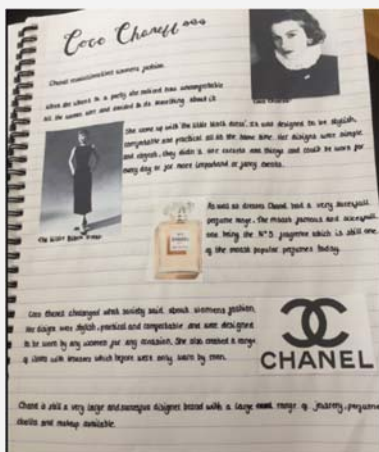 Coco Chanel
Chanel revolutionised womens fashion.
When she went to a party she noticed how uncomfortable
all the women were and decided to do something about it
Coco Chanel
She came up with 'the little black dress', it was designed to be stylish,
comfortable and practical all at the same time. Her designs were simple
and elegant, they didn't use corsets and things and could be worn for
every day or for more important or fancy events.
The little Black Dress
As well as dresses Chanel had a very successfull
perfume range. The most famous and successfull
one being the Nº5 fragrence which is still one
of the most popular perfumes today.
CHANEL
Coco Chanel challenged what society said about womens fashion.
Her design were stylish, practical and comfortable and were designed
to be worn by any women for any occasion. She also created a range
of items with trousers which before were only worn by men.
CHANEL
Chanel is still a very large and successful designer brand with a large range of jewelry, perfume
clothes and makeup available.